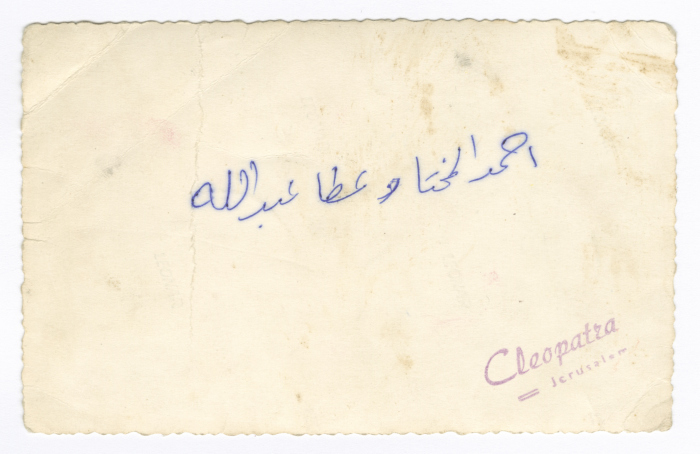 احمد المختار و عطا عبدالله
Cleopatra
Jerusalem